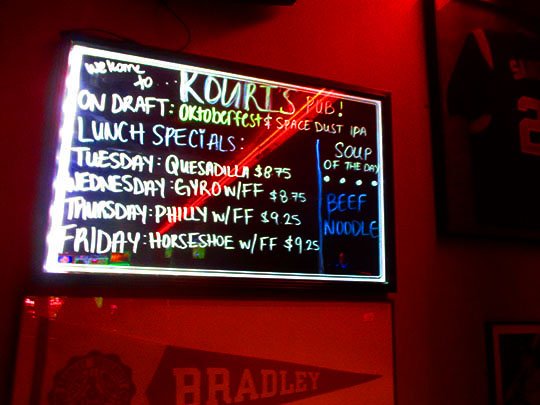 Welcome
to... KOURI'S PUB!
ON DRAFT: OKtoberfest & SPACE DUST IPA
LUNCH SPECIALS:
TUESDAY: QUESADILLA $8.75
WEDNESDAY: GYRO W/FF $8.75
THURSDAY: PHILLY W/FF $9.25
FRIDAY: HORSESHOE W/FF $9.25
SOUP
OF THE DAY
BEEF
NOODLE
BRADLEY